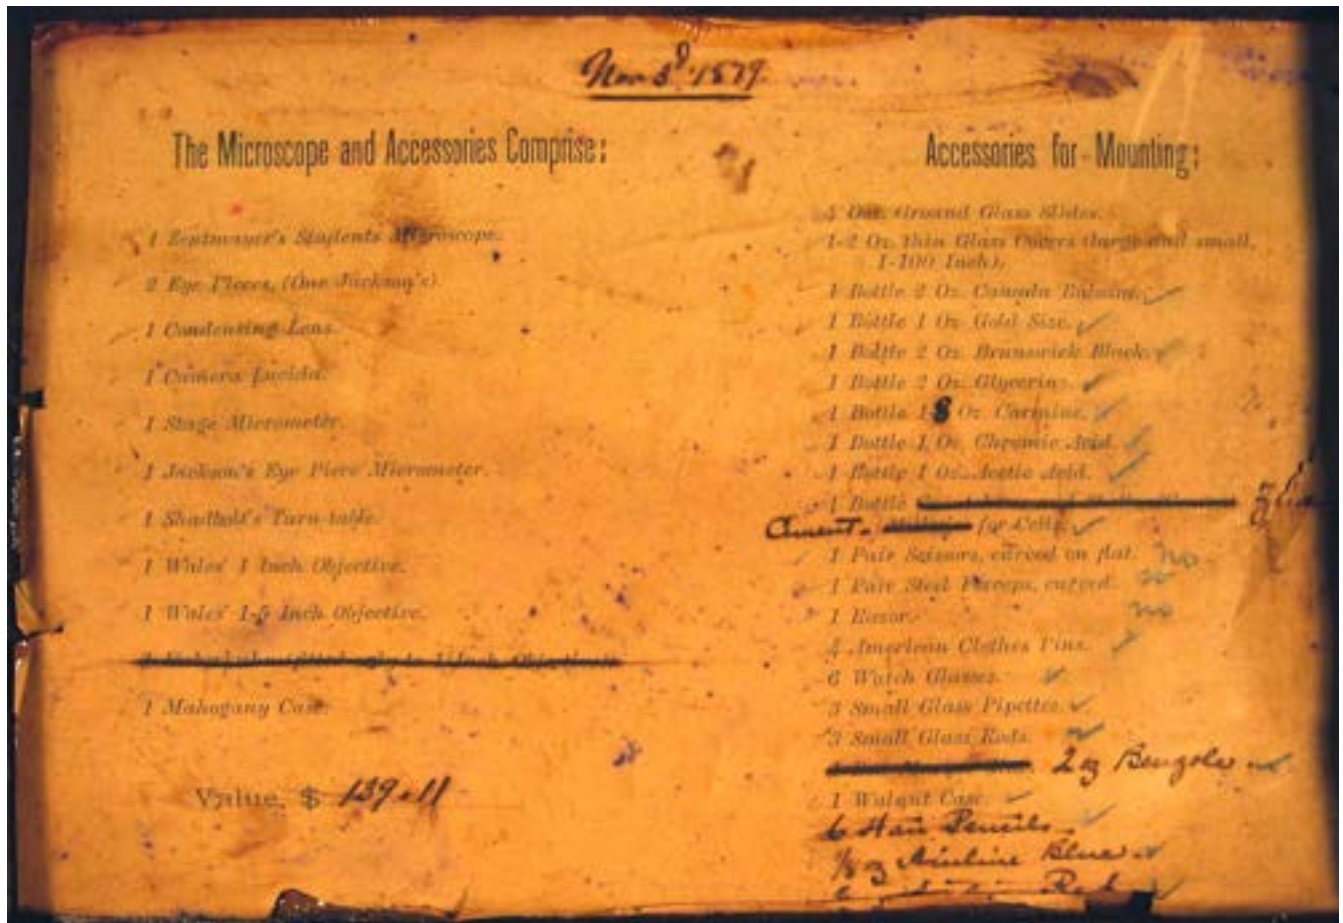 Nov 3ᵈ 1879.
The Microscope and Accessories Comprise:
1 Zentmayer's Students Microscope.
2 Eye Pieces, (One Jackson's)
1 Condensing Lens.
1 Camera Lucida.
1 Stage Micrometer.
1 Jackson's Eye Piece Micrometer.
1 Shadbolt's Turn-table.
1 Wales' 1 Inch Objective.
1 Wales' 1-5 Inch Objective.
1 Mahogany Case.
Value, $ 139.11
Accessories for Mounting:
Ground Glass Slides.
1-2 Oz. thin Glass Covers (large and small,
1-100 Inch).
1 Bottle 2 Oz. Canada Balsam.
1 Bottle 1 Oz. Gold Size.
1 Bottle 2 Oz. Brunswick Black.
1 Bottle 2 Oz. Glycerine.
1 Bottle 1-8 Oz. Carmine.
1 Bottle 1 Oz. Chromic Acid.
1 Bottle 1 Oz. Acetic Acid.
1 Bottle
Cement for Cells.
1 Pair Scissors, curved on flat. no
1 Pair Steel Forceps, curved. no
1 Razor. no
4 American Clothes Pins.
6 Watch Glasses.
3 Small Glass Pipettes.
3 Small Glass Rods.
2 oz Benzole
1 Walnut Case.
6 Hair Pencils
1/8 oz Aniline Blue
Red